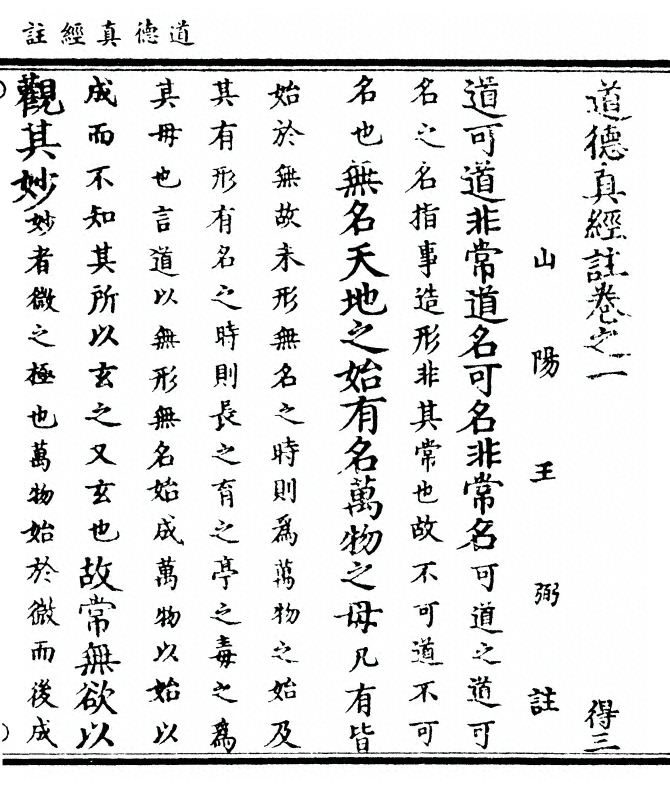 道德真經註
道德真經註卷之一　得三
山陽王弼註
道可道非常道名可名非常名可道之道可
名之名指事造形非其常也故不可道不可
名也無名天地之始有名萬物之母凡有皆
始於無故未形無名之時則爲萬物之始及
其有形有名之時則長之育之亭之毒之爲
其母也言道以無形無名始成萬物以始以
成而不知其所以玄之又玄也故常無欲以
觀其妙妙者微之極也萬物始於微而後成